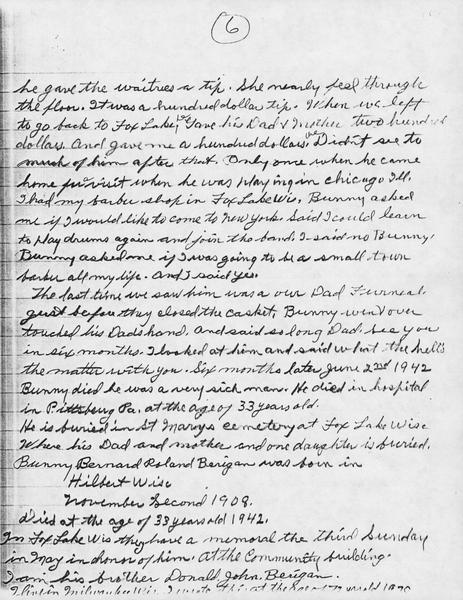 6
he gave the waitress a tip. She nearly feel through
the floor. It was a hundred dollar tip. When we left
to go back to Fox Lake, he Gave his Dad & Mother two hundred
dollars. And gave me a hundred dollars. we Didn't see to
much of him after that. Only once when he came
home for visit when he was playing in Chicago Ill.
I had my barber shop in Fox Lake Wis. Bunny asked
me if I would like to come to New York said I could learn
to play drums again and join the band. I said no Bunny.
Bunny asked me if I was going to be a small town
barber all my life. And I said yes.
The last time we saw him was a our Dad Furneal.
just before they closed the casket, Bunny went over
touched his Dads hand, and said so long Dad. see you
in six months. I looked at him and said what the hell's
the matter with you. Six months later June 2nd 1942
Bunny died he was a very sick man. He died in hospital
in Pittsburg Pa. at the age of 33 years old.
He is buried in St Marys cemetery at Fox Lake Wisc
Where his Dad and mother and one daughter is buried.
Bunny Bernard Roland Berigan was born in
Hilbert Wisc
November Second 1908.
died at the age of 33 years old 1942.
In Fox Lake Wis they have a memoral the third Sunday
in May in donor of him. At the Community building.
I am his brother Donald John. Berigan.
I live in Milwaukee Wis. I wrote this at the age of